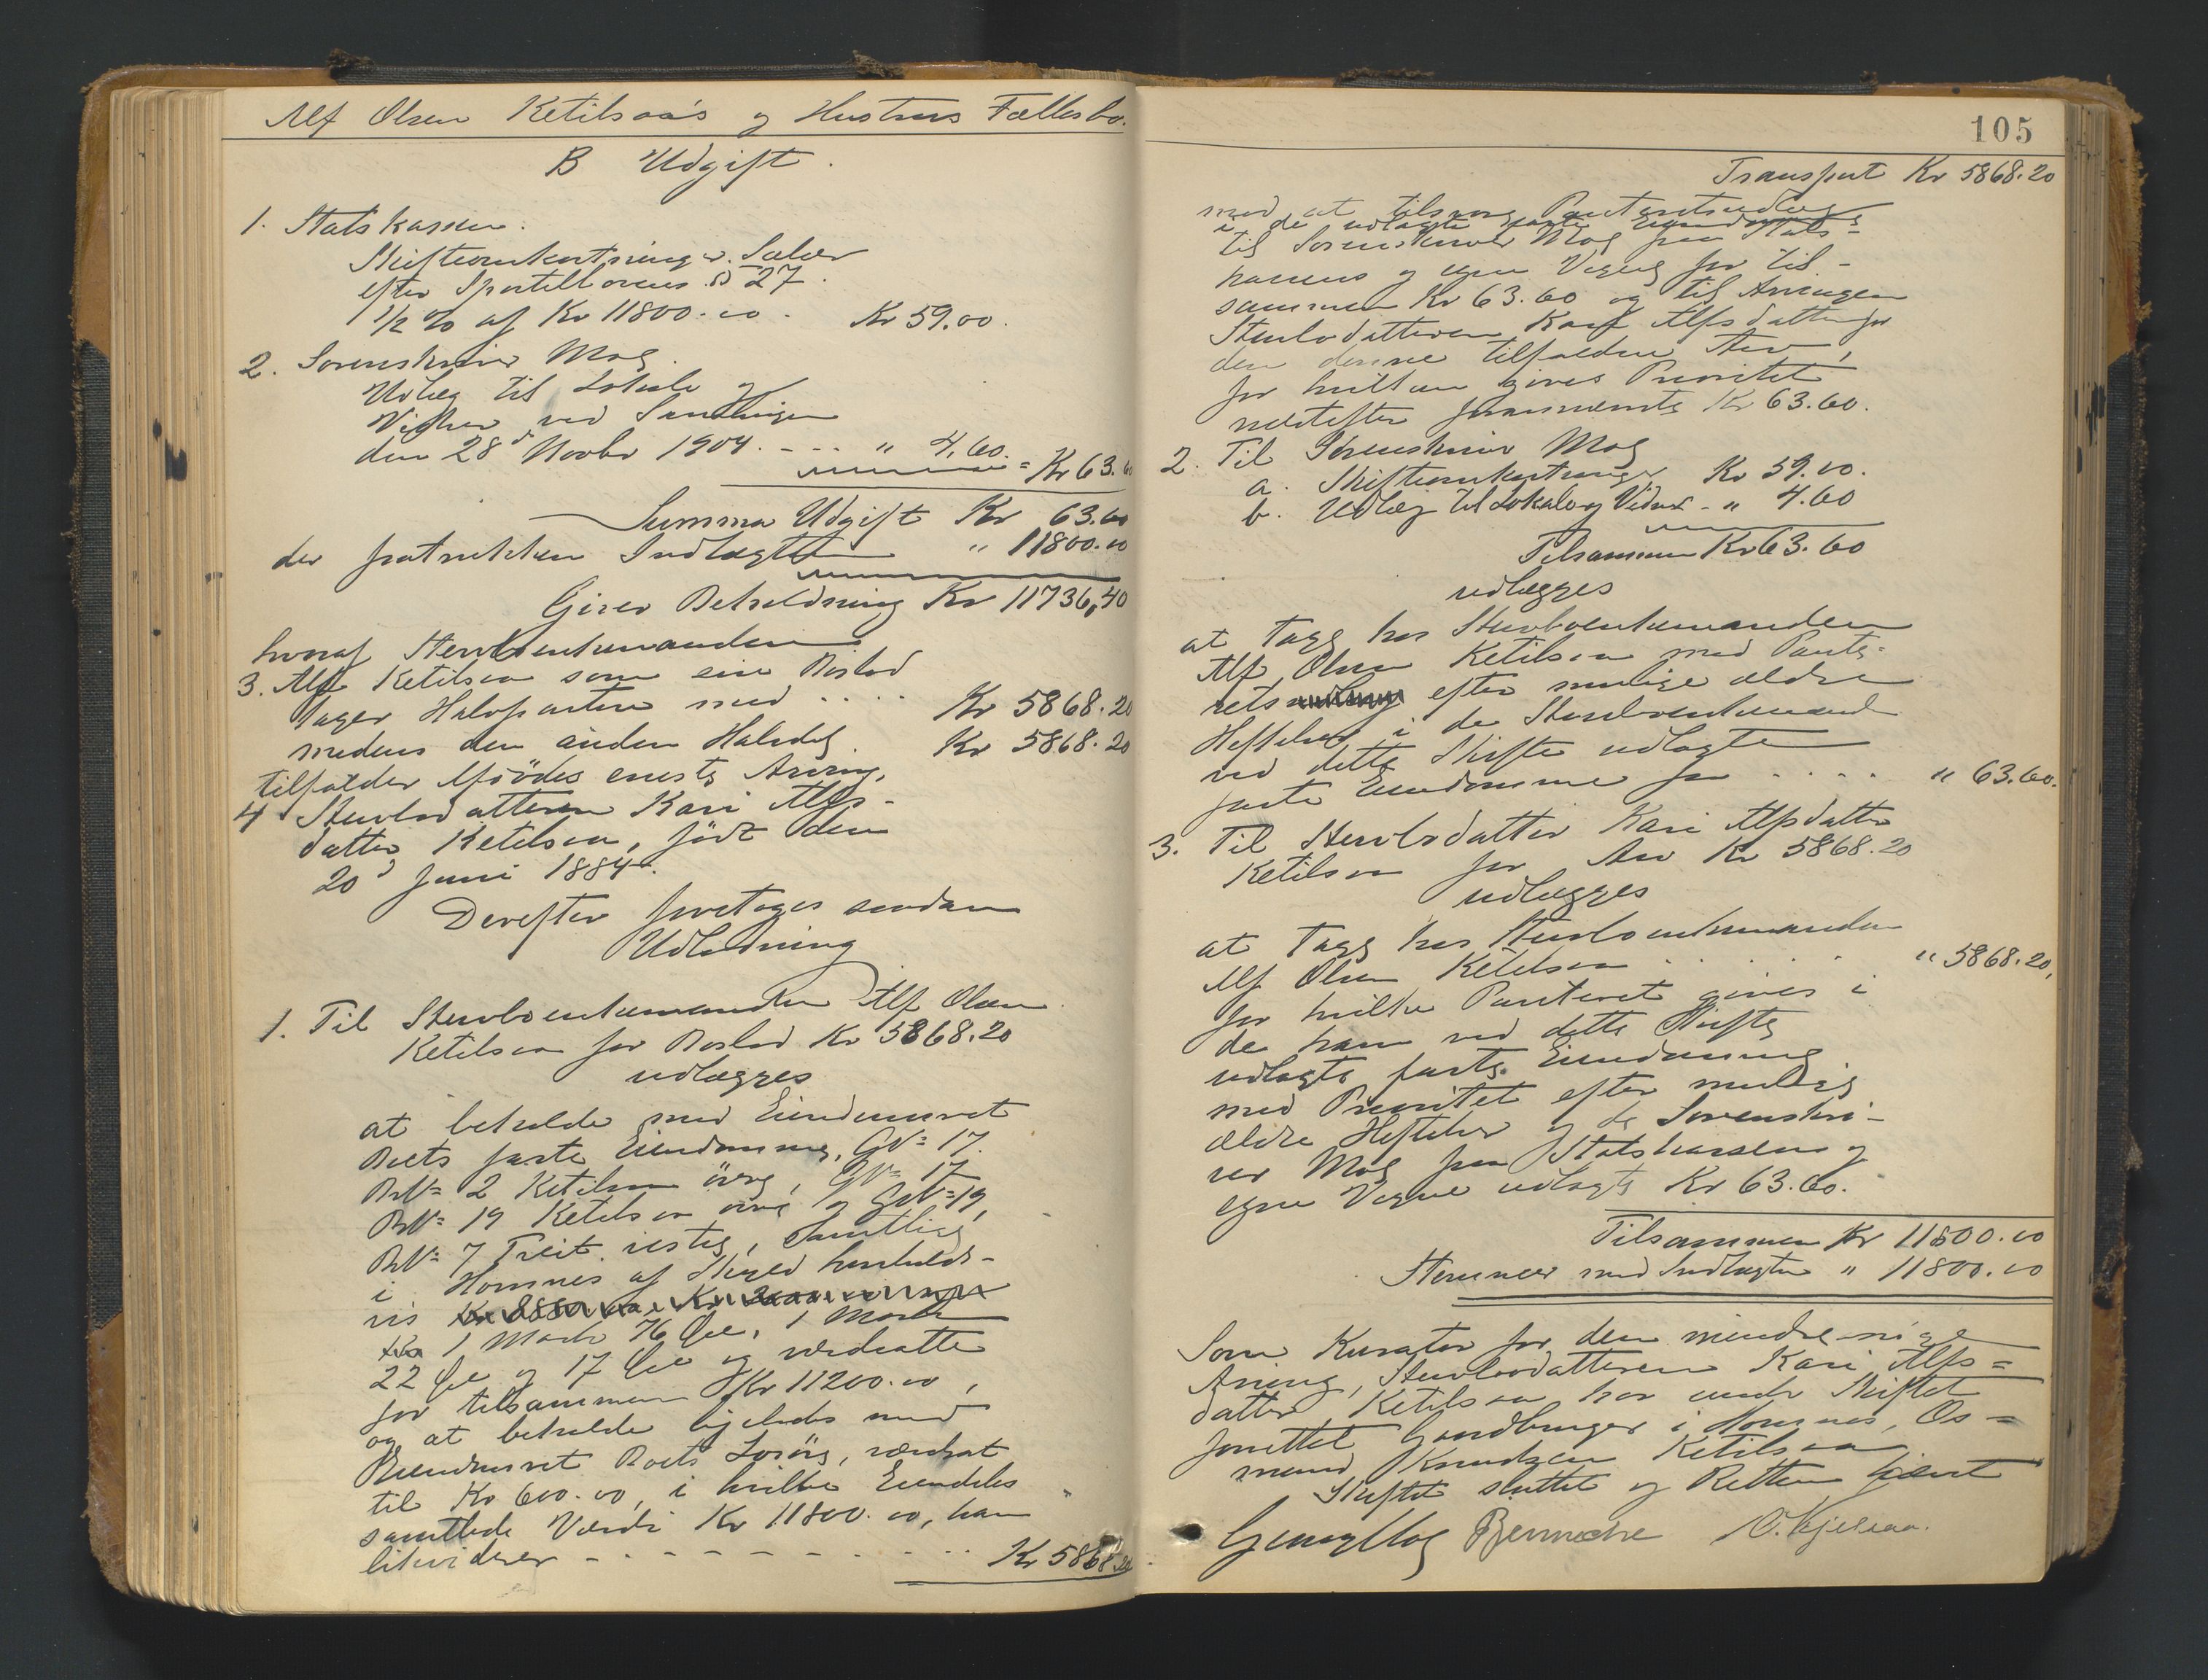 Alf Olsen Ketilsaa's og Hustrus Fællesbo.
B Udgift.
1. Statskassen:
Skifteomkostninger. Salær
efter Sportellovens § 27.
1/2 % af Kr 11800.00. Kr 59.00.
2. Sorenskriver Mog.
Udlæg til Lokale og
Vidner ved Samlingen
den 28d Novbr 1904. - - - " 4,60.
= Kr 63.60
Summa Udgift Kr 63.60
der fratrukken Indtægten " 11800.00
Giver Beholdning Kr 11736,40
hvoraf Stervboenkemanden
3. Alf Ketilsaa som sin Boslod
tager Halvparten med . . . . Kr 5868.20
medens den anden Halvdel . Kr 5868.20
tilfalder Afdødes eneste Arving,
4 Stervbodatteren Kari Alfs-
datter Ketilsaa, født den
20d Juni 1884.
Derefter foretoges saadan
Udlodning
1. Til Stervboenkemanden Alf Olsen
Ketilsaa for Boslod Kr 5868.20
udlægges
at beholde med Eiendomsret
Boets faste Eiendomme, GN= 17.
BN= 2 Ketilsaa øvre, GN= 17
BN= 19 Ketilsaa øvre og GN= 19,
BN= 7 Treit vestre, samtlige
i Hornnes af Skyld henholds-
vis
1 Mark 76 Øre, 1 Mark
22 Øre og 17 Øre og værdsatte
for tilsammen Kr 11200.00,
og at beholde ligeledes med
Eiendomsret Boets Løsøre, værdsat
til Kr 600.00, i hvilke Eiendeles
samtlede Værdi Kr 11800.00, han
likviderer - - - - - - - - - . . . Kr 5868.20
105
Transport Kr 5868.20
mod at tilsvare
i de udlagte faste
til Sorenskriver Mog paa Stats-
kassens og egne Vegne for til-
sammen Kr 63.60 og til Arvingen
Stervbodatteren Kari Alfsdatter for
den denne tilfaldne Arv,
for hvilken gives Prioritet
næstefter forannævnte Kr 63.60.
2. Til Sorenskriver Mog
a. Skifteomkostninger Kr 59.00.
b. Udlæg til Lokale og Vidner - " 4.60
Tilsammen Kr 63.60
udlægges
at tage hos Stervboenkemanden
Alf Olsen Ketilsaa med Pante-
ret efter mulige ældre
Heftelser i de Stervboenkemand
ved dette Skifte udlagte
faste Eiendomme for . . . . " 63.60.
3. Til Stervbodatter Kari Alfsdatter
Ketilsaa for Arv Kr 5868.20
udlægges
at tage hos Stervboenkemanden
Alf Olsen Ketilsaa . . . . . " 5868.20,
for hvilke Panteret gives i
de ham ved dette Skifte
udlagte faste Eiendomme
med Prioritet efter mulige
ældre Heftelser og de Sorenskri-
ver Mog paa Statskassens og
egne Vegne udlagte Kr 63.60.
Tilsammen Kr 11800.00
Stemmer med Indtægten " 11800.00
Som Kurator for den mindreårige
Arving, Stervbodatteren Kari Alfs=
datter Ketilsaa har under Skiftet
forrettet Gaardbruger i Hornnes, Os=
mund Knudsen Ketilsaa.
Skiftet sluttet og Retten hævet